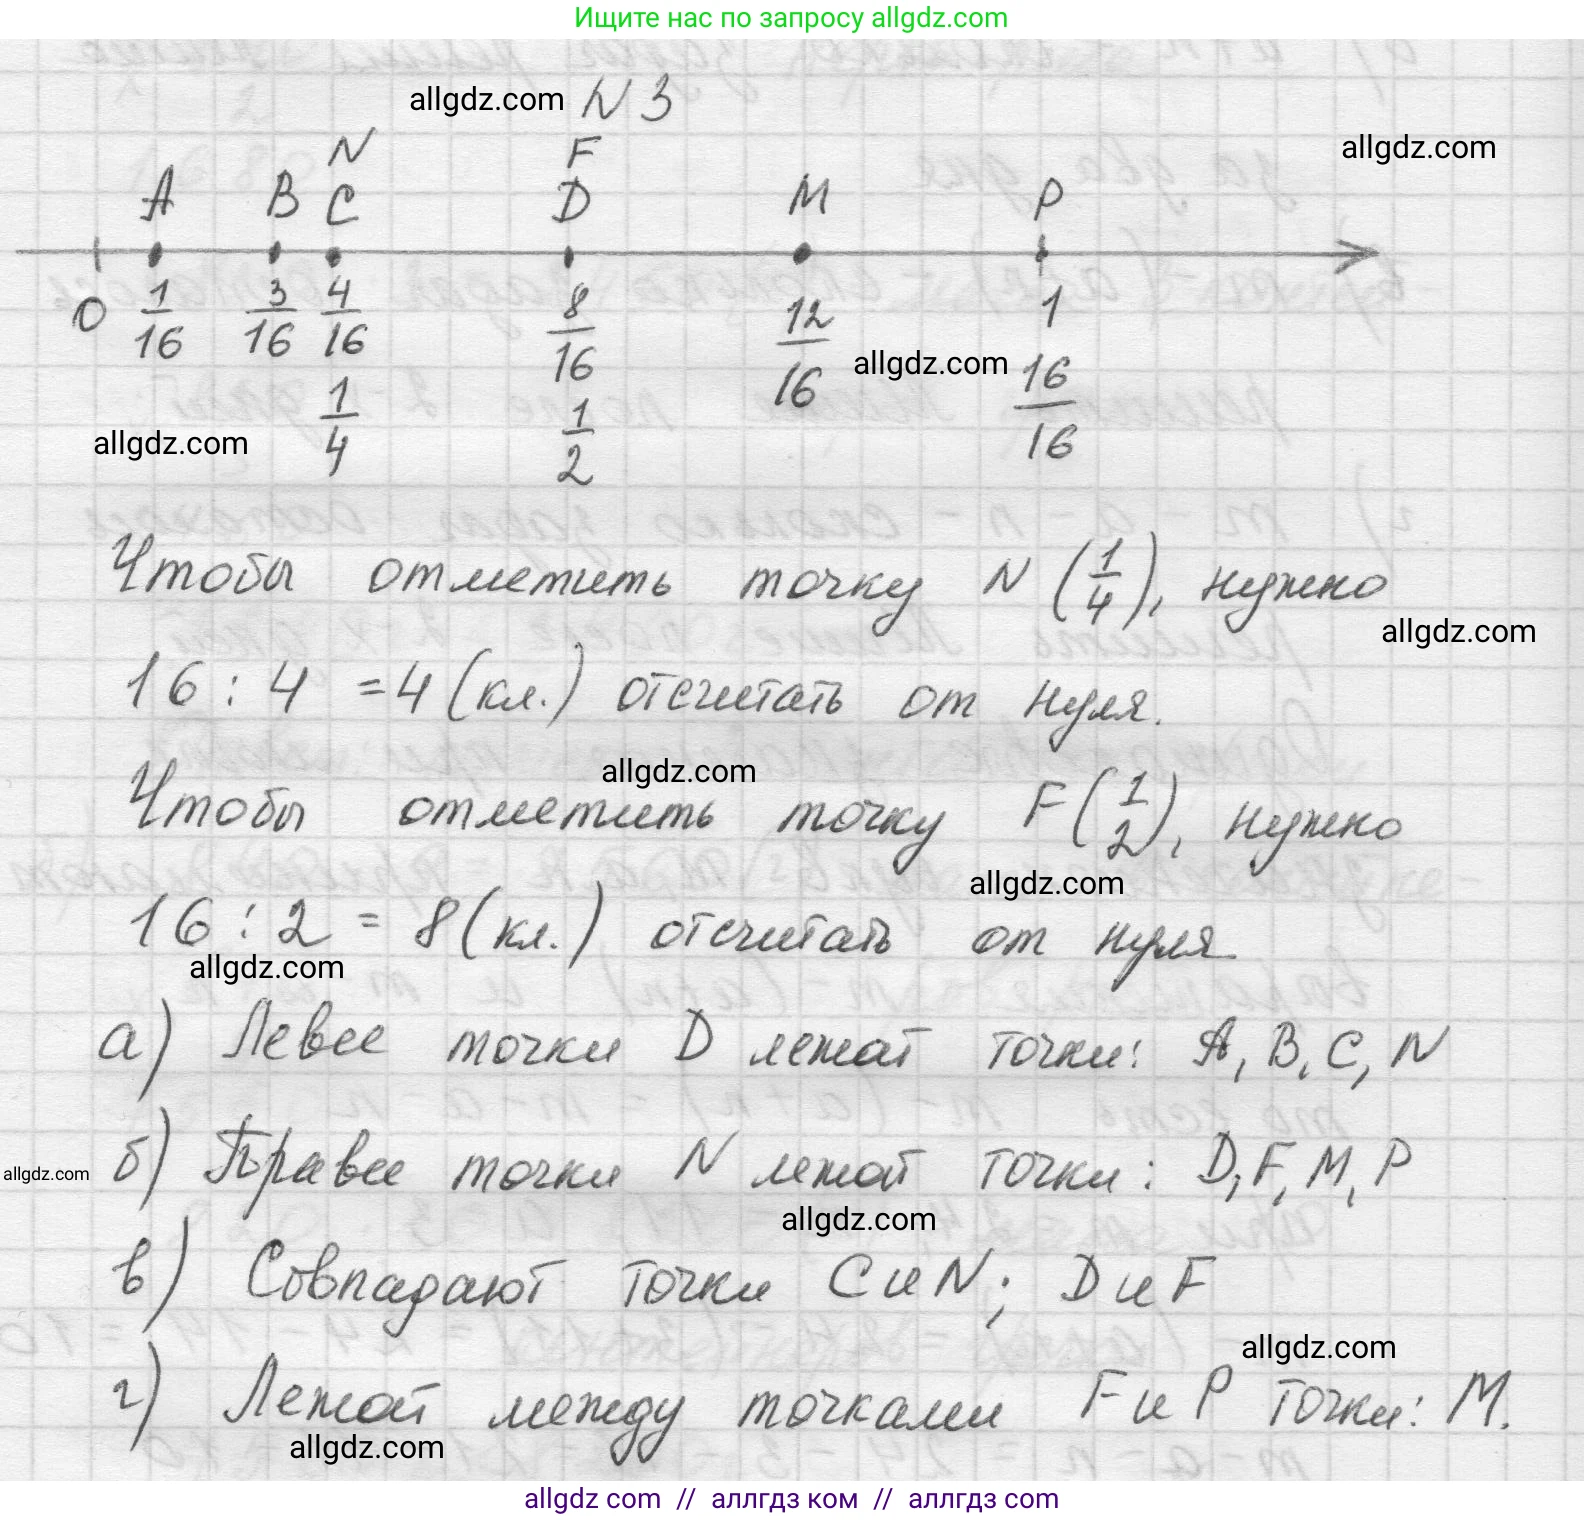 Ищите нас по запросу allgdz.com
allgdz.com N 3
allgdz.com
N F
A B C D M P
0 1/16 3/16 4/16 8/16 12/16 1
allgdz.com
1/4 1/2 16/16
allgdz.com
Чтобы отметить точку N (1/4), нужно
allgdz.com
16 : 4 = 4 (кл.) отсчитать от нуля.
allgdz.com
Чтобы отметить точку F (1/2), нужно
allgdz.com
16 : 2 = 8 (кл.) отсчитать от нуля
allgdz.com
а) Левее точки D лежат точки: A, B, C, N
б) Правее точки N лежат точки: D, F, M, P
allgdz.com
allgdz.com
в) Совпадают точки C и N; D и F
allgdz.com
г) Лежат между точками F и P точки: M.
allgdz.com
allgdz com // аллгдз ком // allgdz.com